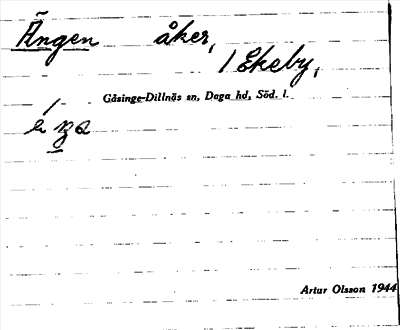 Ängen åker,
/ Ekeby,
Gåsinge-Dillnäs sn, Daga hd, Söd. l.
Artur Olsson 1944